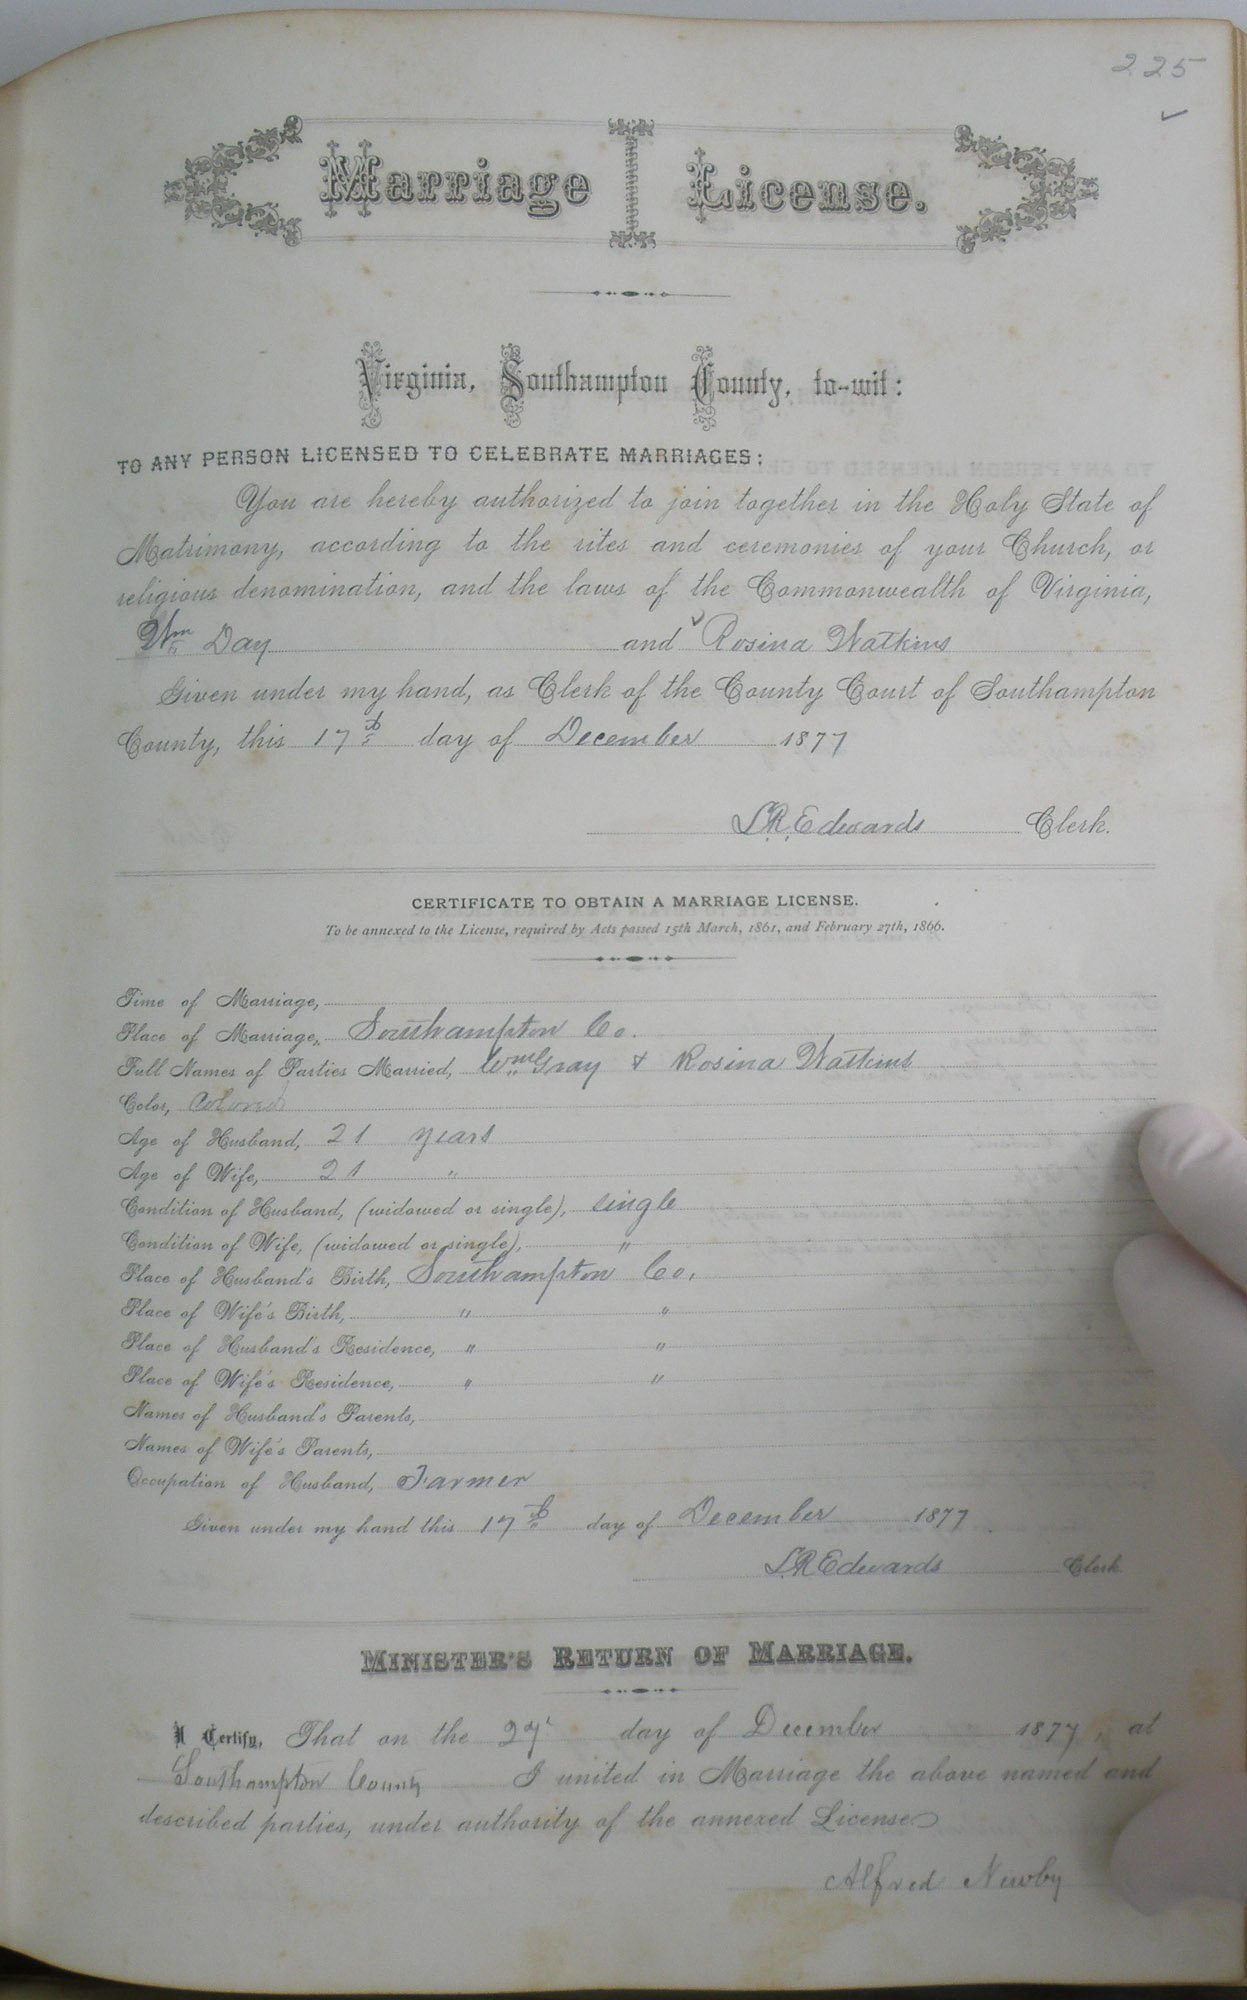 225
Marriage License.
Virginia, Southampton County, to-wit:
TO ANY PERSON LICENSED TO CELEBRATE MARRIAGES:
You are hereby authorized to join together in the Holy State of
Matrimony, according to the rites and ceremonies of your Church, or
religious denomination, and the laws of the Commonwealth of Virginia,
Wm Day and Rosina Watkins
Given under my hand, as Clerk of the County Court of Southampton
County, this 17th day of December 1877
L.R. Edwards Clerk.
CERTIFICATE TO OBTAIN A MARRIAGE LICENSE.
To be annexed to the License, required by Acts passed 15th March, 1861, and February 27th, 1866.
Time of Marriage,
Place of Marriage, Southampton Co.
Full Names of Parties Married, Wm Gray & Rosina Watkins
Color, Colored
Age of Husband, 21 years
Age of Wife, 21 "
Condition of Husband, (widowed or single), single
Condition of Wife, (widowed or single), "
Place of Husband's Birth, Southampton Co.
Place of Wife's Birth, " "
Place of Husband's Residence, " "
Place of Wife's Residence, " "
Names of Husband's Parents,
Names of Wife's Parents,
Occupation of Husband, Farmer
Given under my hand this 17th day of December 1877
L.R Edwards Clerk.
MINISTER'S RETURN OF MARRIAGE.
I Certify, That on the day of December 1877, at
Southampton County I united in Marriage the above named and
described parties, under authority of the annexed License
Alfred Newby